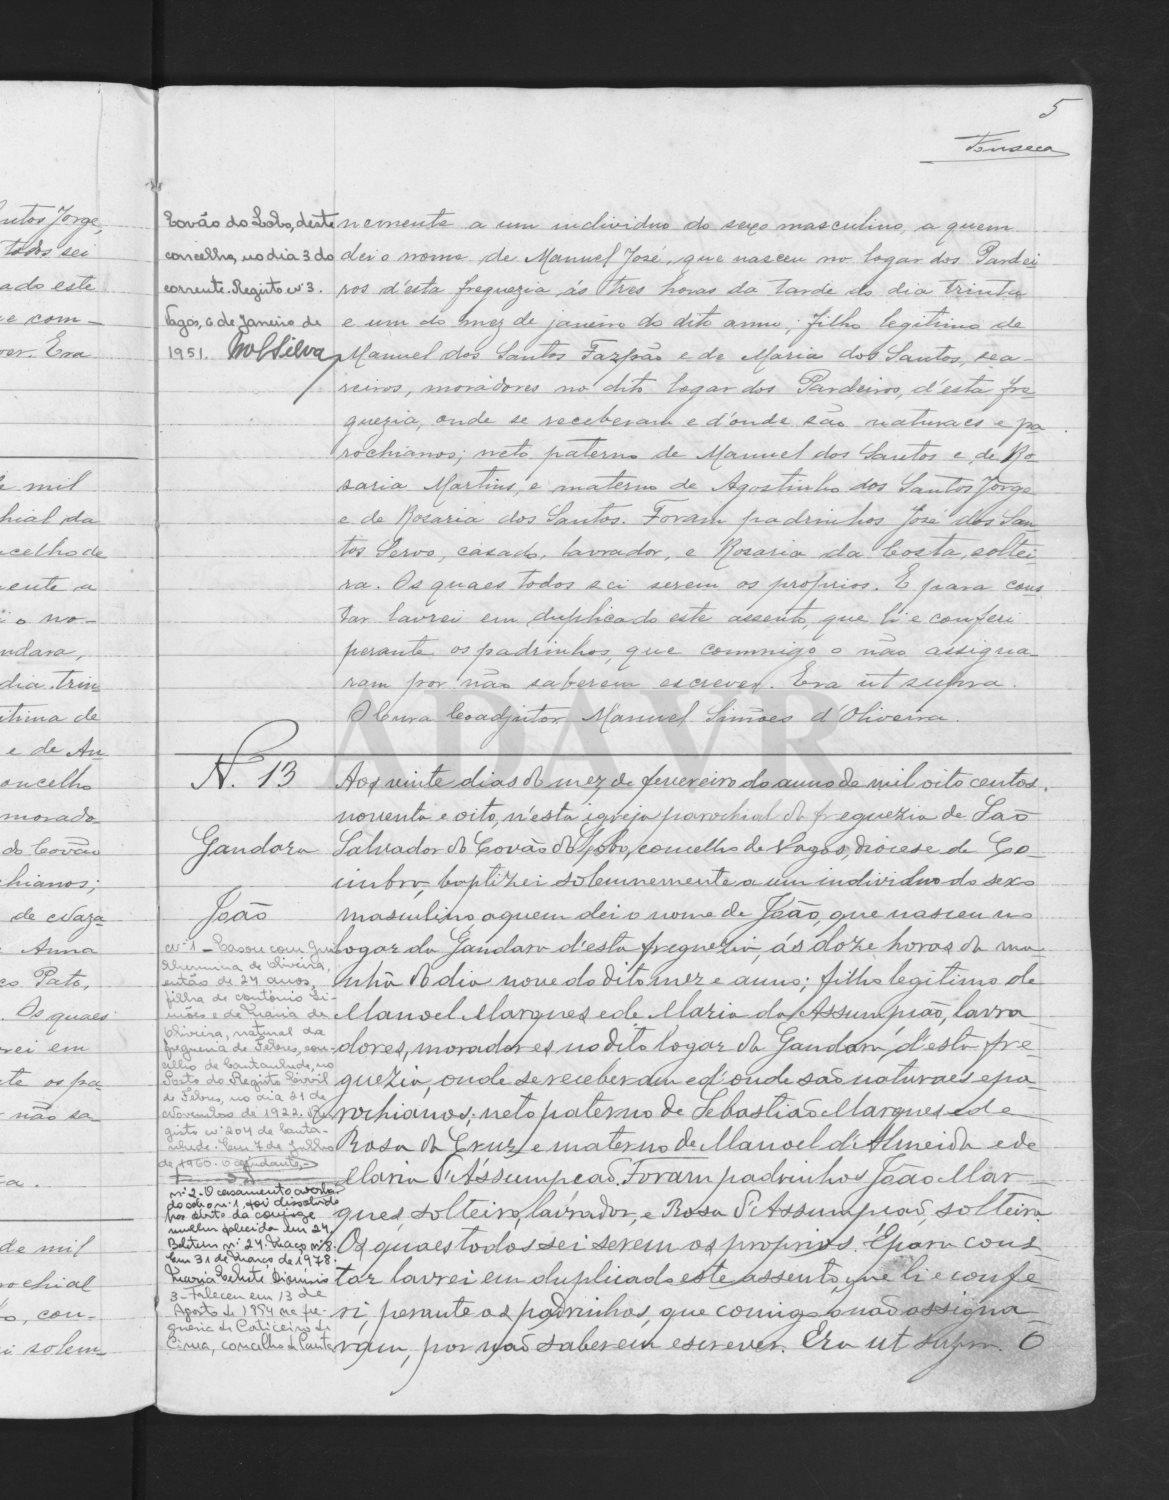 5
Fonseca
Covão do Lobo, deste
concelho, no dia 3 do
corrente. Registo nº 3.
Vagos, 6 de Janeiro de
1951.
nemente a um individuo do sexo masculino, a quem
dei o nome de Manuel José, que nasceu no logar dos Pardei
ros d'esta freguezia, ás tres horas da tarde do dia trinta
e um do mez de janeiro do dito anno; filho legitimo de
Manuel dos Santos Fazpão e de Maria dos Santos, sea-
reiros, moradores no dito logar dos Pardeiros, d'esta fre
guezia, onde se receberam e d'onde são naturaes e pa
rochianos; neto paterno de Manuel dos Santos e de Ro-
saria Martins, e materno de Agostinho dos Santos Jorge
e de Rosaria dos Santos. Foram padrinhos José dos San
tos Servo, casado, lavrador, e Rosaria da Costa, soltei
ra. Os quaes todos sei serem os proprios. E para cons
tar lavrei em duplicado este assento, que li e conferi
perante os padrinhos, que commigo o não assigna
ram por não saberem escrever. Era ut supra.
O Cura Coadjutor Manuel Simões d'Oliveira.
ADAVR
N. 13
Gandara
João
Aos vinte dias do mez de fevereiro do anno de mil oito centos
noventa e oito, n'esta igreja parochial da freguezia de São
Salvador do Covão do Lobo, concelho de Vagos, diocese de Co-
imbra, baptizei solemnemente a um individuo do sexo
masculino a quem dei o nome de João, que nasceu no
logar da Gandara d'esta freguezia, ás doze horas da ma
nhã do dia nove do dito mez e anno; filho legitimo de
Manoel Marques e de Maria da Assumpção, lavra
dores, moradores no dito logar da Gandara, d'esta fre-
guezia, onde se receberam e d'onde são naturaes e pa
rochianos; neto paterno de Sebastião Marques e de
Rosa da Cruz e materno de Manoel d'Almeida e de
Maria d'Assumpcão. Foram padrinhos João Mar
ques, solteiro, lavrador, e Rosa d'Assumpção, solteira.
Os quaes todos sei serem os proprios. E para cons-
tar lavrei em duplicado este assento, que li e confe-
ri, perante os padrinhos, que comigo o não assigna
ram, por não saberem escrever. Era ut supra. O
Nº 1 - Casou com Gui
lhermina de Oliveira,
então de 24 anos,
filha de António Si-
mões e de Maria de
Oliveira, natural da
freguesia de Febres, con-
celho de Cantanhede, no
Posto do Registo Civil
de Febres, no dia 21 de
Novembro de 1922. Re
gisto nº 204 de Canta-
nhede. Em 7 de Julho
de 1960. O ajudante,
nº 2 - O casamento averba
do sob o nº 1 foi dissolvido
por óbito da conjuge
mulher falecida em 24.
Boletim nº 24. Março nº 8.
Em 31 de Março, de 1978.
3 - Faleceu em 13 de
Agosto de 1984 na fre-
guesia de Corticeiro de
Cima, concelho de Canta
ntos Jorge,
todos sei
ado este
e com-
ver. Era
e mil
hial da
ncelho de
mente a
i o no-
ndara,
dia trin
itima de
e de An
oncelho
morado
do Covão
chianos;
de Naza
Anna
co Pato,
. Os quaes
rei em
te os pa-
não sa-
de mil
rochial
o, con-
ei solem-